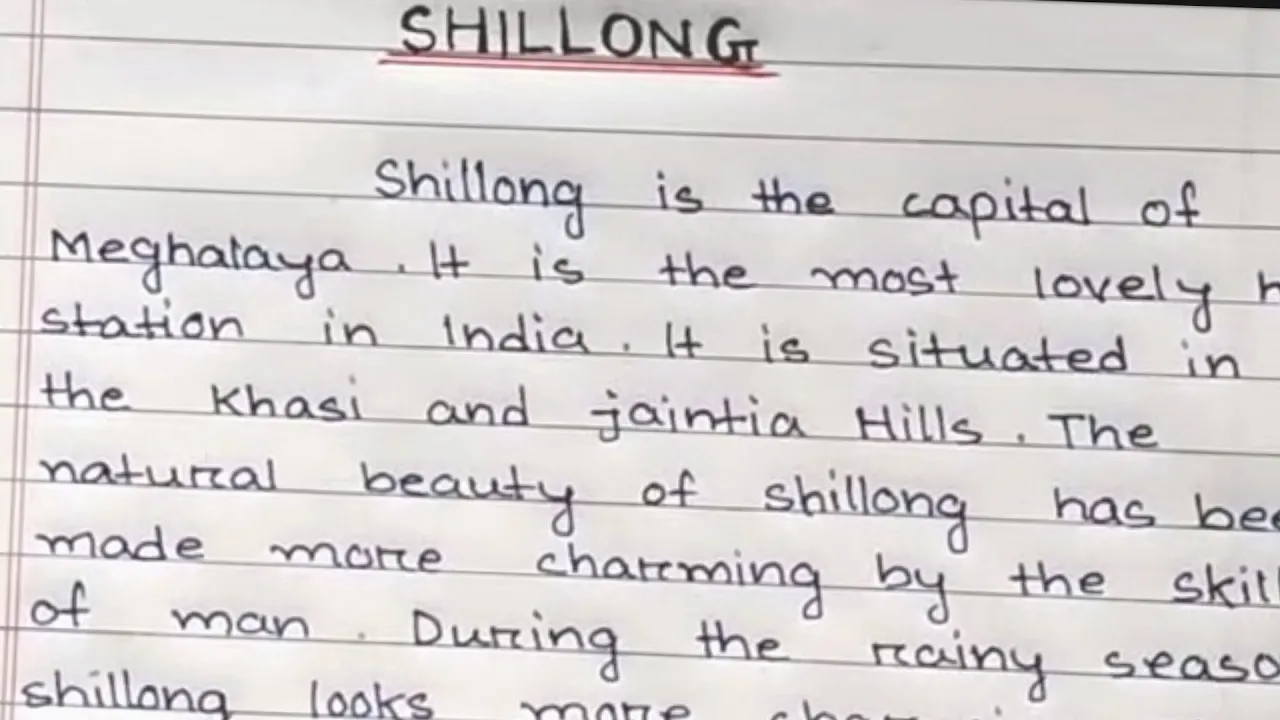 SHILLONG
Shillong is the capital of
Meghalaya. It is the most lovely
station in India. It is situated in
the Khasi and jaintia Hills. The
natural beauty of shillong has
made more charming by the
of man. During the rainy
shillong looks more